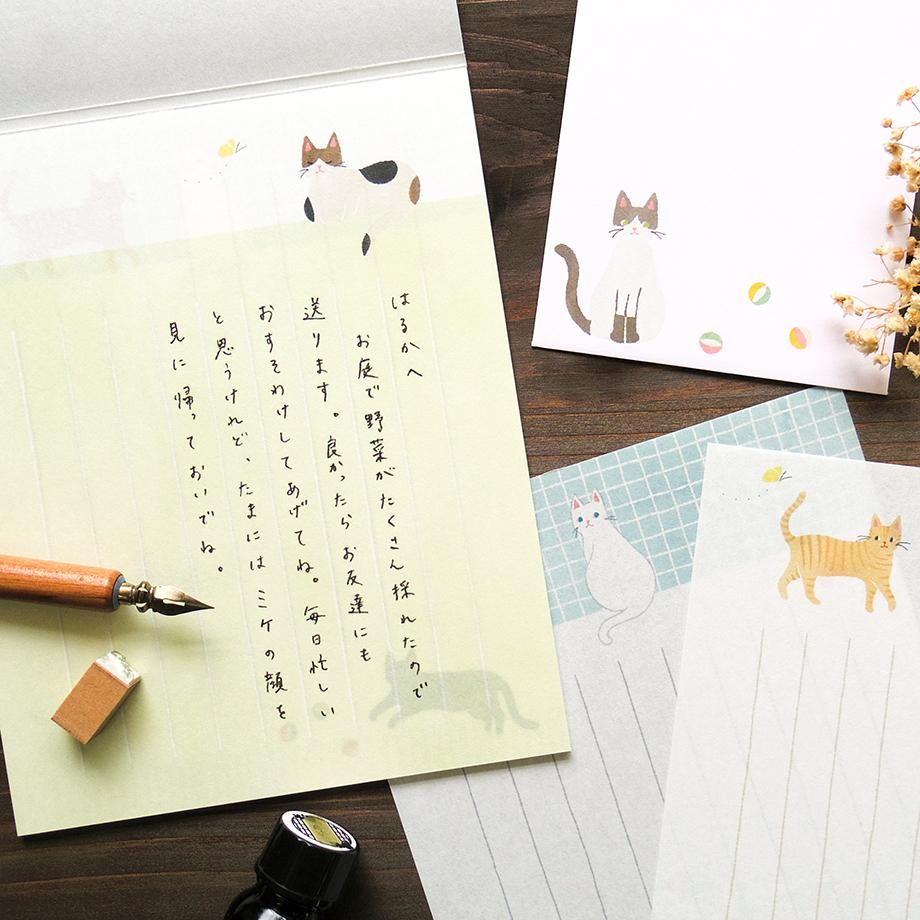 はるかへ
お庭で野菜がたくさん採れたので
送ります。良かったらお友達にも
おすそわけしてあげてね。毎日忙しい
と思うけれど、たまにはミケの顔を
見に帰っておいでね。